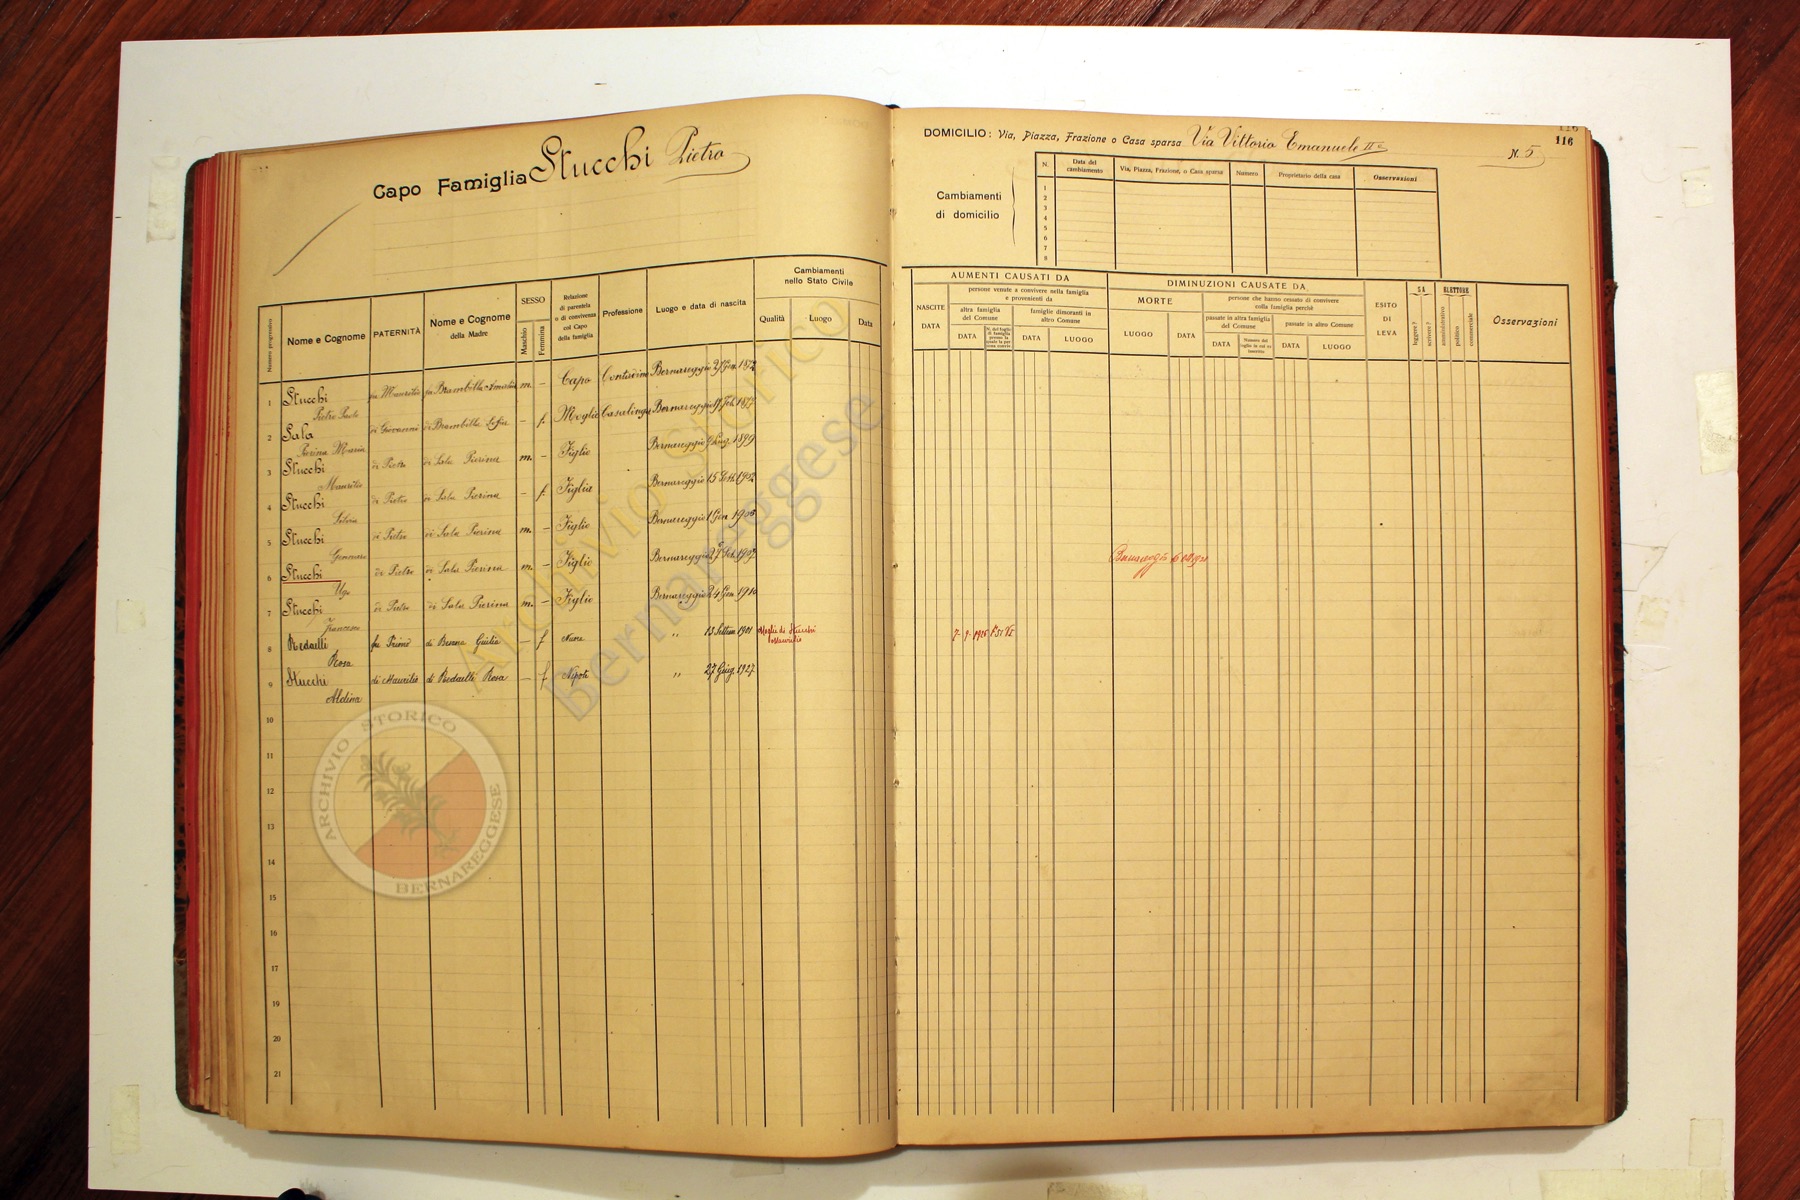 Capo Famiglia Stucchi Pietro
Numero progressivo
Nome e Cognome
PATERNITÀ
Nome e Cognome
della Madre
SESSO
Maschio
Femmina
Relazione
di parentela
o di convivenza
col Capo
della famiglia
Professione
Luogo e data di nascita
Cambiamenti
nello Stato Civile
Qualità
Luogo
Data
1 Stucchi fu Maurilio fu Brambilla m. – Capo Contadino Bernareggio
Pietro Paolo
2 Sala di Giovanni di Brambilla – f. Moglie Casalinga Bernareggio
Pierina Maria
3 Stucchi di Pietro di Sala Pierina m. – Figlio Bernareggio 1899
Maurilio
4 Stucchi di Pietro di Sala Pierina – f. Figlia Bernareggio 15 Sett. 1902
Silvia
5 Stucchi di Pietro di Sala Pierina m. – Figlio Bernareggio 1 Gen. 1905
Gennaro
6 Stucchi di Pietro di Sala Pierina m. – Figlio Bernareggio 1907
Ugo
7 Stucchi di Pietro di Sala Pierina m. – Figlio Bernareggio 24 Gen. 1910
Francesco
8 Redaelli fu Primo di Benna Giulia – f Nuora " 13 Settem 1901 Moglie di Stucchi
Maurilio
Rosa
9 Stucchi di Maurilio di Redaelli Rosa – f Nipote " 27 Giug. 1927
Aldina
10
11
12
13
14
15
16
17
18
19
20
21
ARCHIVIO STORICO
BERNAREGGESE
Archivio Storico
Bernareggese
116
116
DOMICILIO: Via, Piazza, Frazione o Casa sparsa Via Vittorio Emanuele II°
N. 5
Cambiamenti
di domicilio
N.
Data del
cambiamento
Via, Piazza, Frazione, o Casa sparsa
Numero
Proprietario della casa
Osservazioni
1
2
3
4
5
6
7
8
AUMENTI CAUSATI DA
NASCITE
DATA
persone venute a convivere nella famiglia
e provenienti da
altra famiglia
del Comune
DATA
famiglie dimoranti in
altro Comune
DATA
LUOGO
DIMINUZIONI CAUSATE DA
MORTE
LUOGO
DATA
persone che hanno cessato di convivere
colla famiglia perchè
passate in altra famiglia
del Comune
DATA
passate in altro Comune
DATA
LUOGO
ESITO
DI
LEVA
SA
leggere?
scrivere?
ELETTORE
amministrativo
politico
commerciale
Osservazioni
Bernareggio
7-9-1926